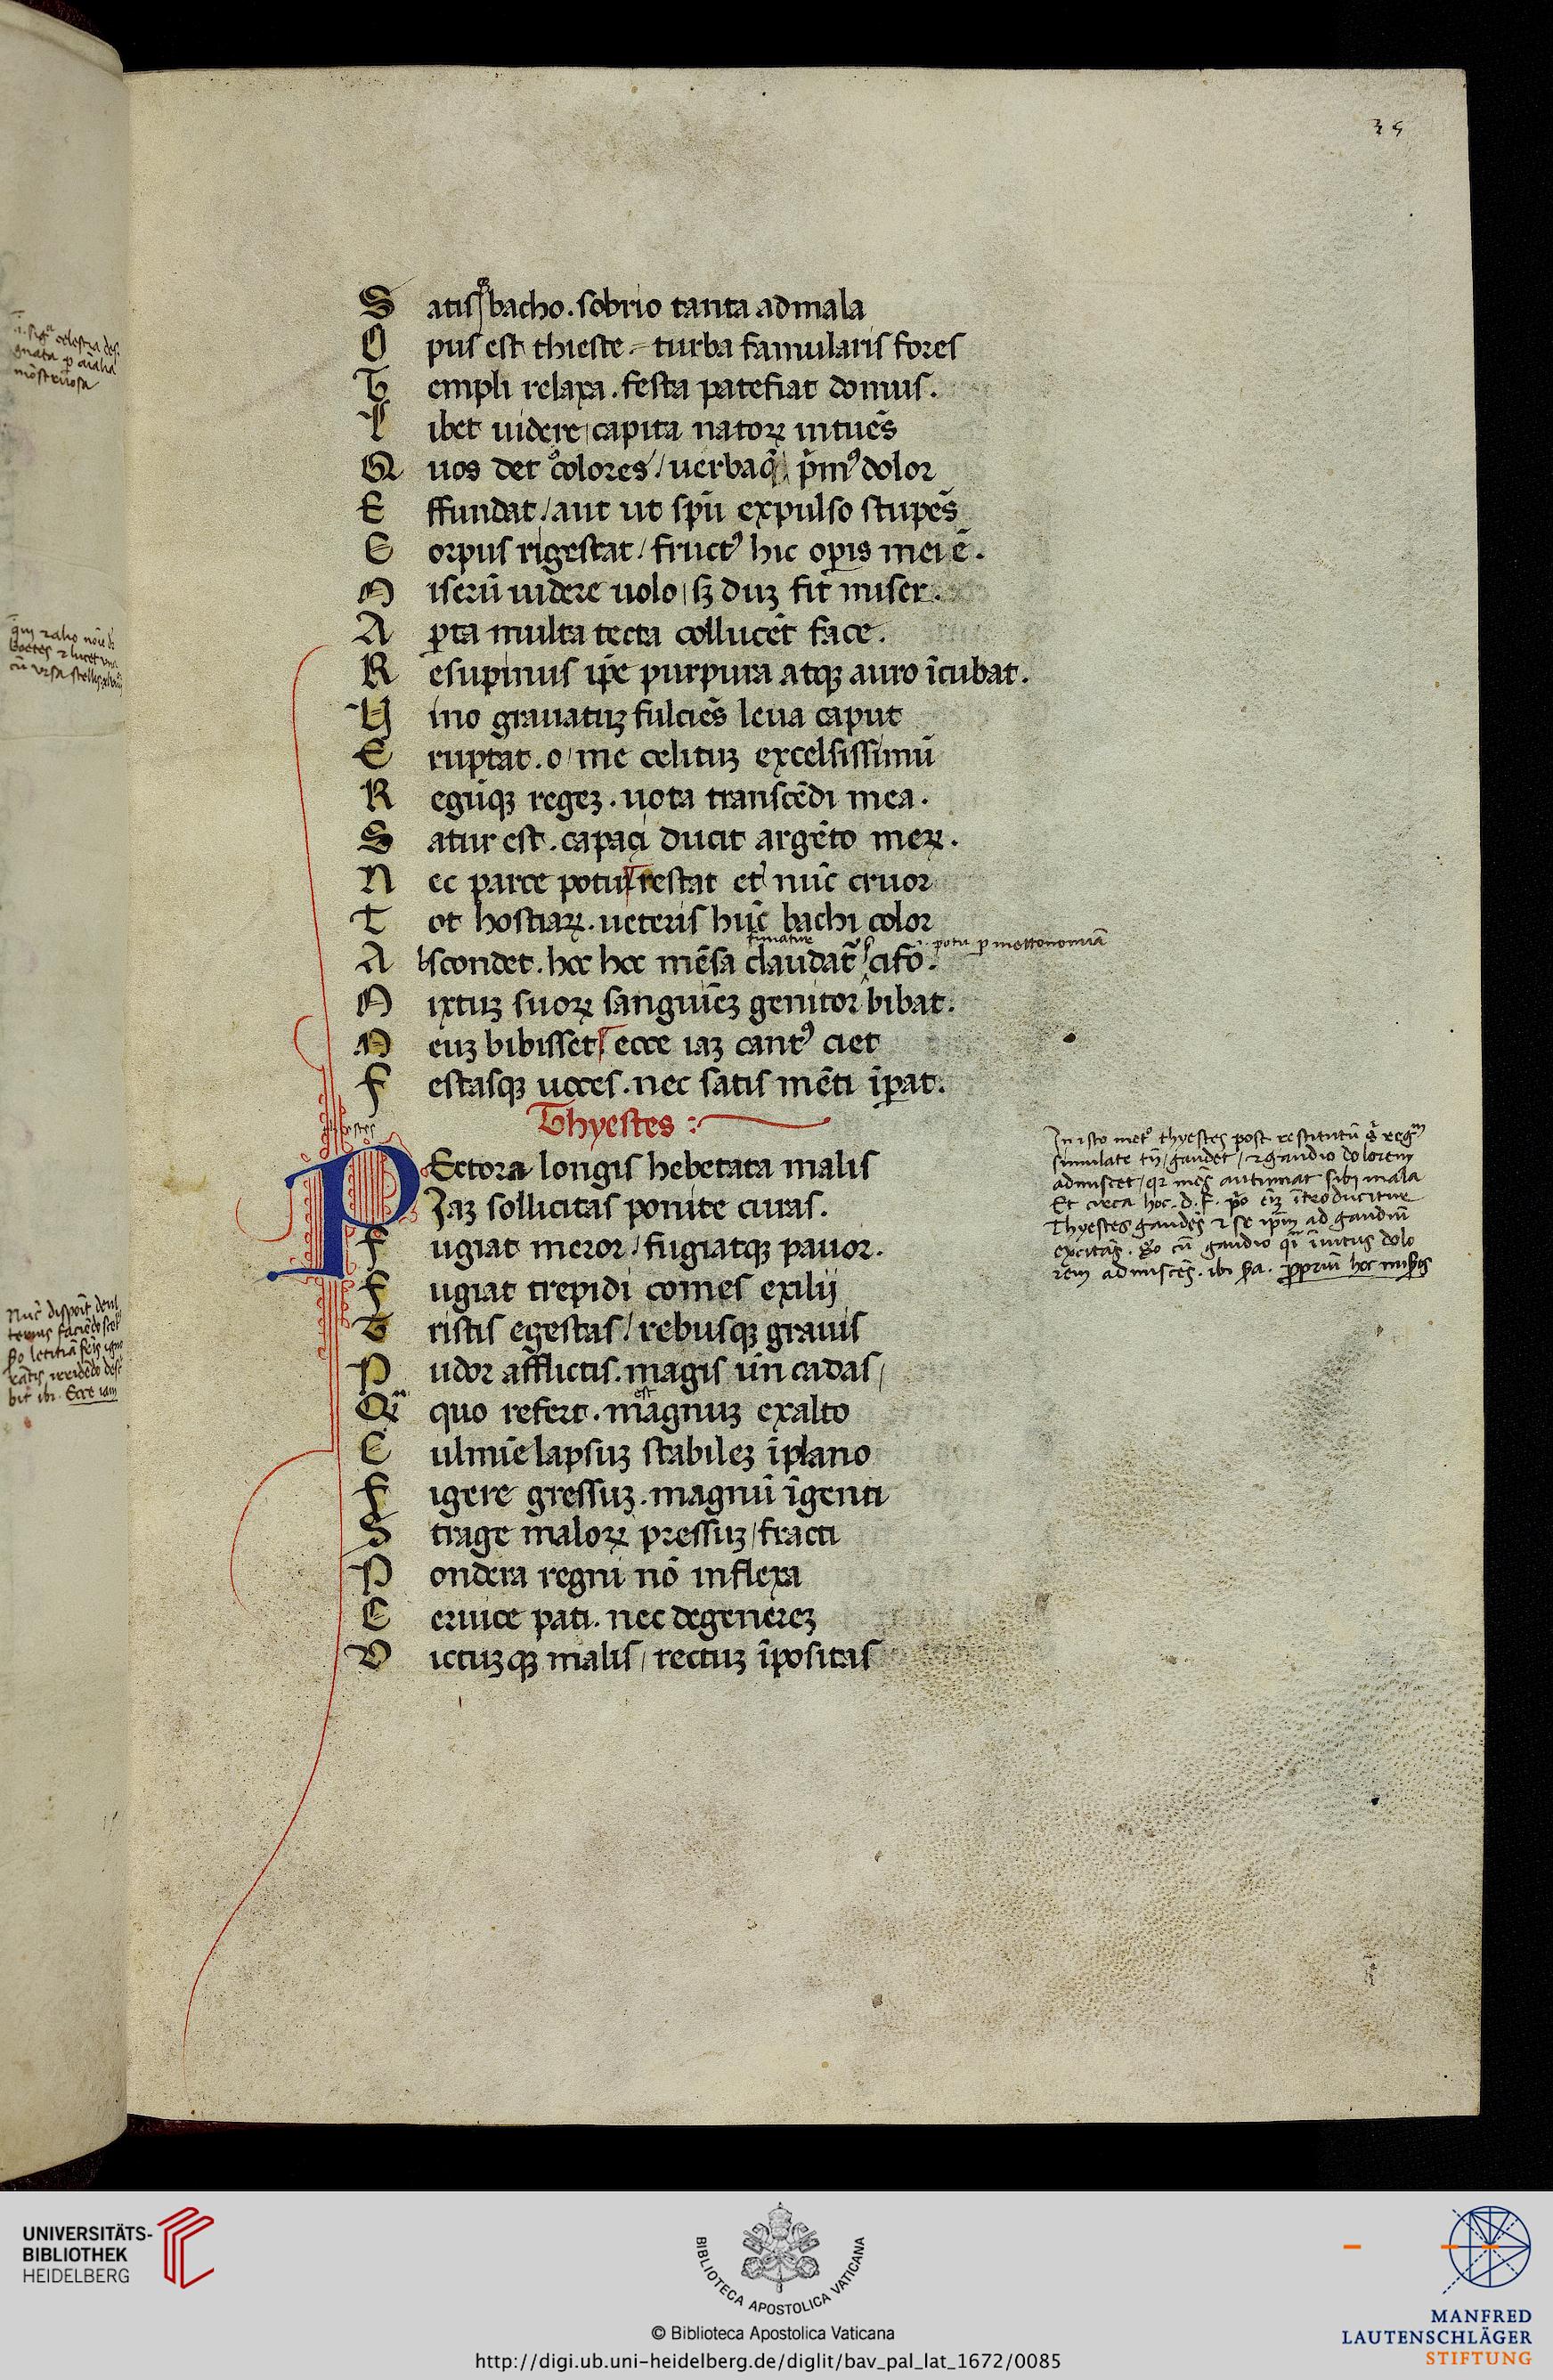 35
Satisqꝫ bacho. sobrio tanta ad mala
Opus est thieste. turba famularis fores
Templi relaxa. festa patefiat domus.
Libet uidere capita natoꝝ intuēs
Quos det colores / uerba q̄ p̄mꝰ dolor
Effundat / aut ut spū expulso stupēs
Corpus rigescat / fructꝰ hic opis mei ē.
Miserū uidere uolo / sꝫ duꝫ fit miser.
Apta multa tecta collucēt face.
Resupinus ip̄e purpura atqꝫ auro īcubat.
Vino grauatuꝫ fulciēs leua caput
Eruptat. o / me celituꝫ excelsissimū
Regūqꝫ regeꝫ. uota transcēdi mea.
Satur est. capaci ducit argēto meꝝ.
Nec parce potu restat et nūc cruor
Tot hostiaꝝ. ueteris hūc bachi color
Abscondet. hoc hoc mēsa claudat̄ cifo.
potu p mettonomiā
Mixtuꝫ suoꝝ sanguīeꝫ genitor bibat.
Meuꝫ bibisset ecce iaꝫ cantꝰ ciet
Festasqꝫ uoces. nec satis mēti īpat.
Thyestes
PEctora longis hebetata malis
Iaꝫ sollicitas ponite curas.
Fugiat meror / fugiatqꝫ pauor.
Fugiat trepidi comes exilij
Tristis egestas / rebusqꝫ grauis
Pudor afflictis. magis ūn cadas /
Qꝫ quo refert. magnuꝫ ex alto
est
Culmīe lapsuꝫ stabileꝫ ī plano
Figere gressuꝫ. magnū īgenti
Strage maloꝝ pressuꝫ / fracti
Pondera regni nō inflexa
Ceruice pati. nec degenereꝫ
Victuꝫqꝫ malis / rectuꝫ īpositas
In isto metº thyestes post restitutū regm̄
simulate tn̄ / gaudet / ⁊ gaudio dolorem
admiscet / qr mēs autumat sibi mala
Et circa hoc. D. F. pº em̄ ītroducitur
Thyestes gaudēs ⁊ se ipm̄ ad gaudiū
excitās. 2º cū gaudio īuitus dolo
rem admiscēs. ibi 2a. ppriū hoc mis̄os
UNIVERSITÄTS-
BIBLIOTHEK
HEIDELBERG
BIBLIOTECA APOSTOLICA VATICANA
© Biblioteca Apostolica Vaticana
http://digi.ub.uni-heidelberg.de/diglit/bav_pal_lat_1672/0085
MANFRED
LAUTENSCHLÄGER
STIFTUNG